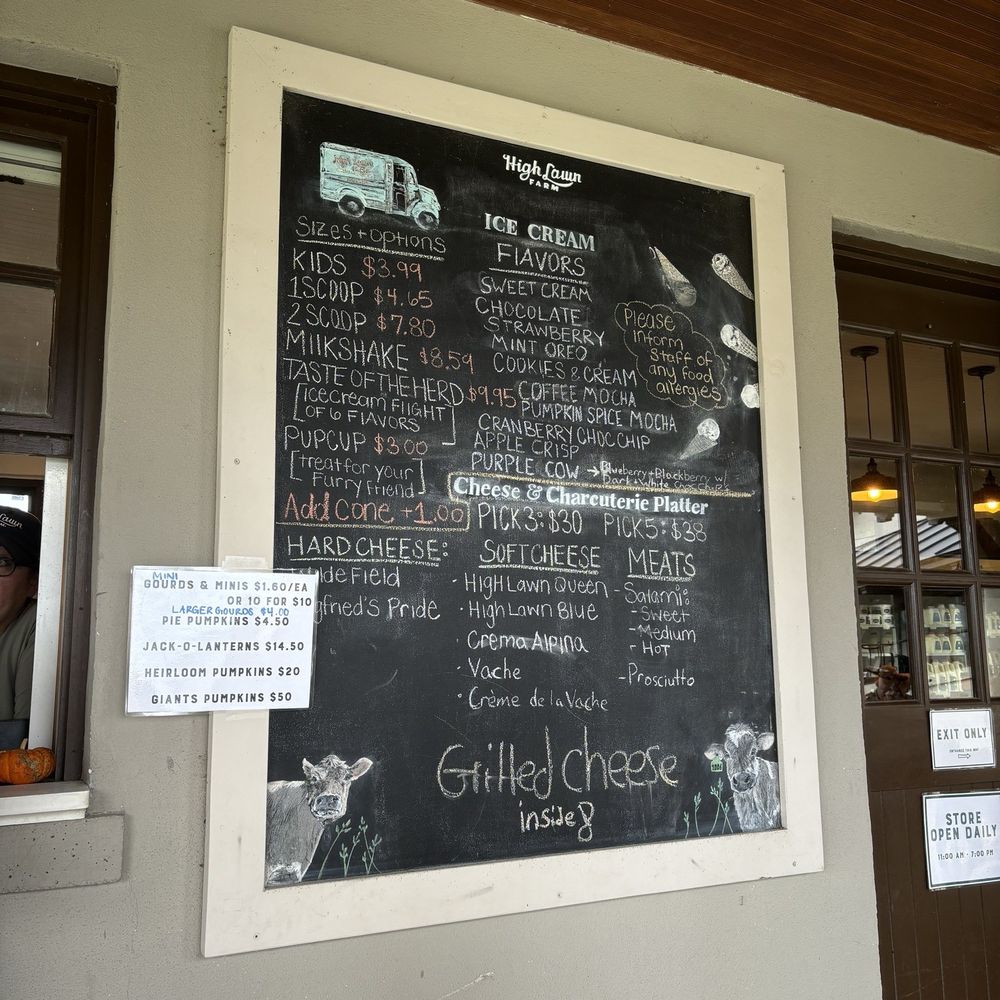 High Lawn
FARM
Sizes + options
KIDS $3.99
1 SCOOP $4.65
2 SCOOP $7.80
MILKSHAKE $8.59
TASTE OF THE HERD $9.95
[Ice cream Flight
OF 6 FLAVORS]
PUPCUP $3.00
[treat for your
Furry Friend]
Add Cone +1.00
ICE CREAM
FLAVORS
SWEET CREAM
CHOCOLATE
STRAWBERRY
MINT OREO
COOKIES & CREAM
COFFEE MOCHA
PUMPKIN SPICE MOCHA
CRANBERRY CHOC CHIP
APPLE CRISP
PURPLE COW → Blueberry + Blackberry w/
Dark + White Chocolate
Please
inform
Staff of
any food
allergies
Cheese & Charcuterie Platter
PICK 3: $30 PICK 5: $38
HARD CHEESE:
Field
Pride
SOFT CHEESE
· High Lawn Queen
· High Lawn Blue
· Crema Alpina
· Vache
· Crème de la Vache
MEATS
- Salami:
- Sweet
- Medium
- Hot
- Prosciutto
Grilled Cheese
inside
MINI
GOURDS & MINIS $1.60/EA
OR 10 FOR $10
LARGER GOURDS $4.00
PIE PUMPKINS $4.50
JACK-O-LANTERNS $14.50
HEIRLOOM PUMPKINS $20
GIANTS PUMPKINS $50
EXIT ONLY
ENTRANCE THIS WAY
STORE
OPEN DAILY
11:00 AM - 7:00 PM